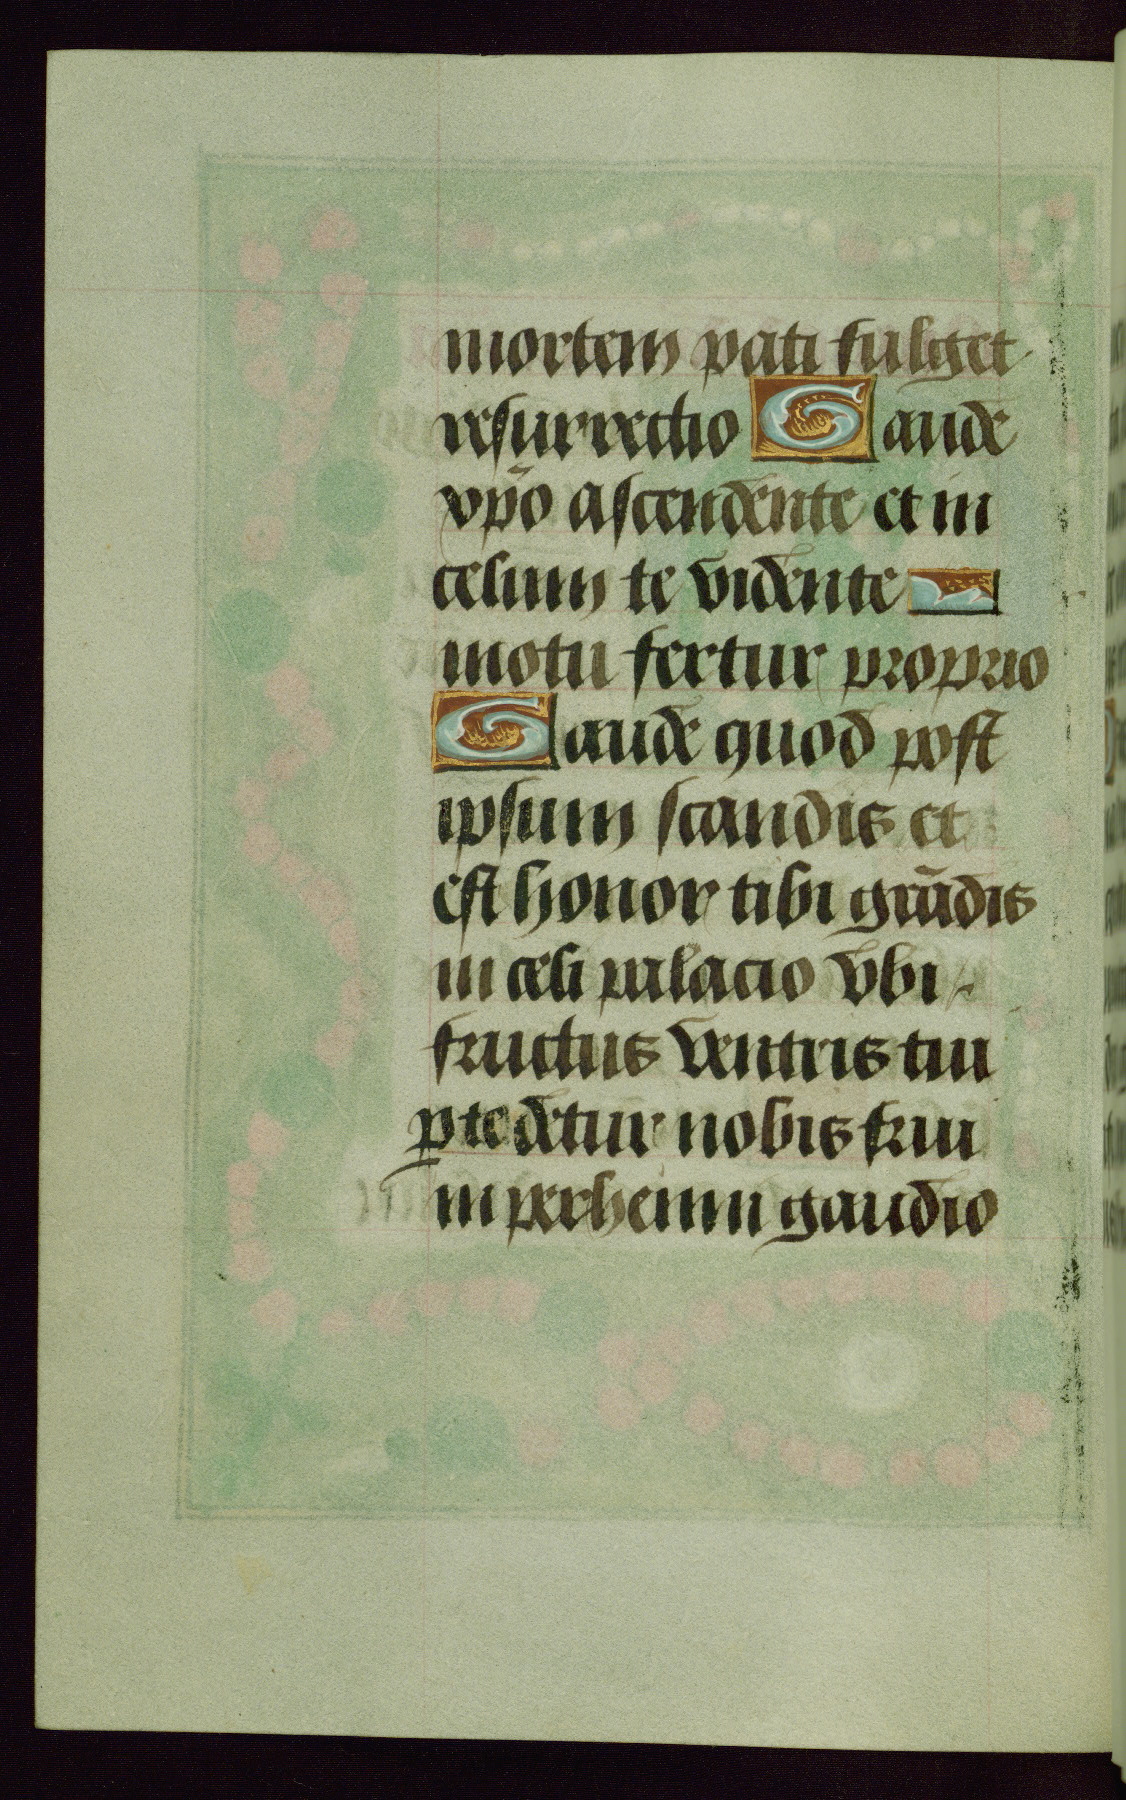 mortem pati fulget
resurrectio Gaude
xp̄o ascendente et in
celum te vidente
motu fertur proprio
Gaude quod post
ipsum scandis et
est honor tibi grādis
in celi palacio vbi
fructus ventris tui
ꝑ te detur nobis frui
in perhenni gaudio